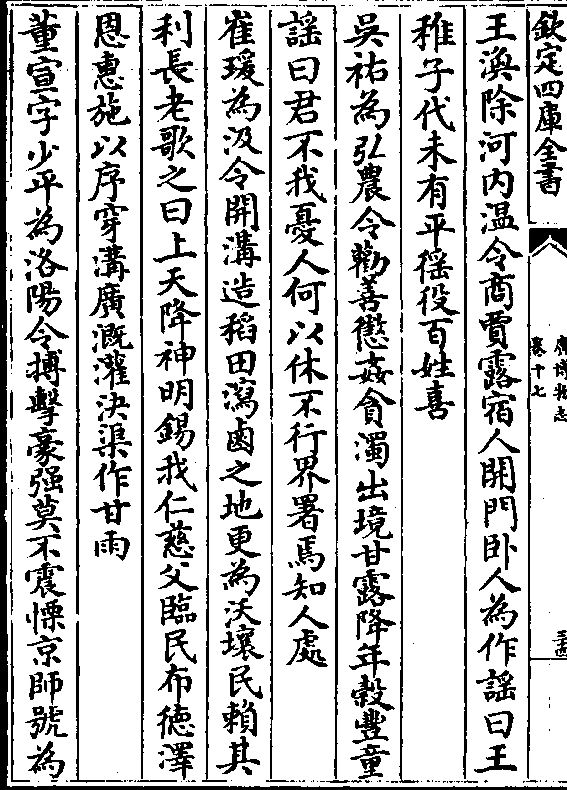 欽定四庫全書
廣博物志
卷十七
王渙除河内温令商賈露宿人開門卧人為作謡曰王
稚子代未有平徭役百姓喜
吳祐為弘農令勸善懲姦貪濁出境甘露降年穀豐童
謡曰君不我憂人何以休不行界署焉知人處
崔瑗為汲令開溝造稻田瀉鹵之地更為沃壤民賴其
利長老歌之曰上天降神明錫我仁慈父臨民布德澤
恩惠施以序穿溝廣溉灌決渠作甘雨
董宣字少平為洛陽令搏擊豪强莫不震慄京師號為